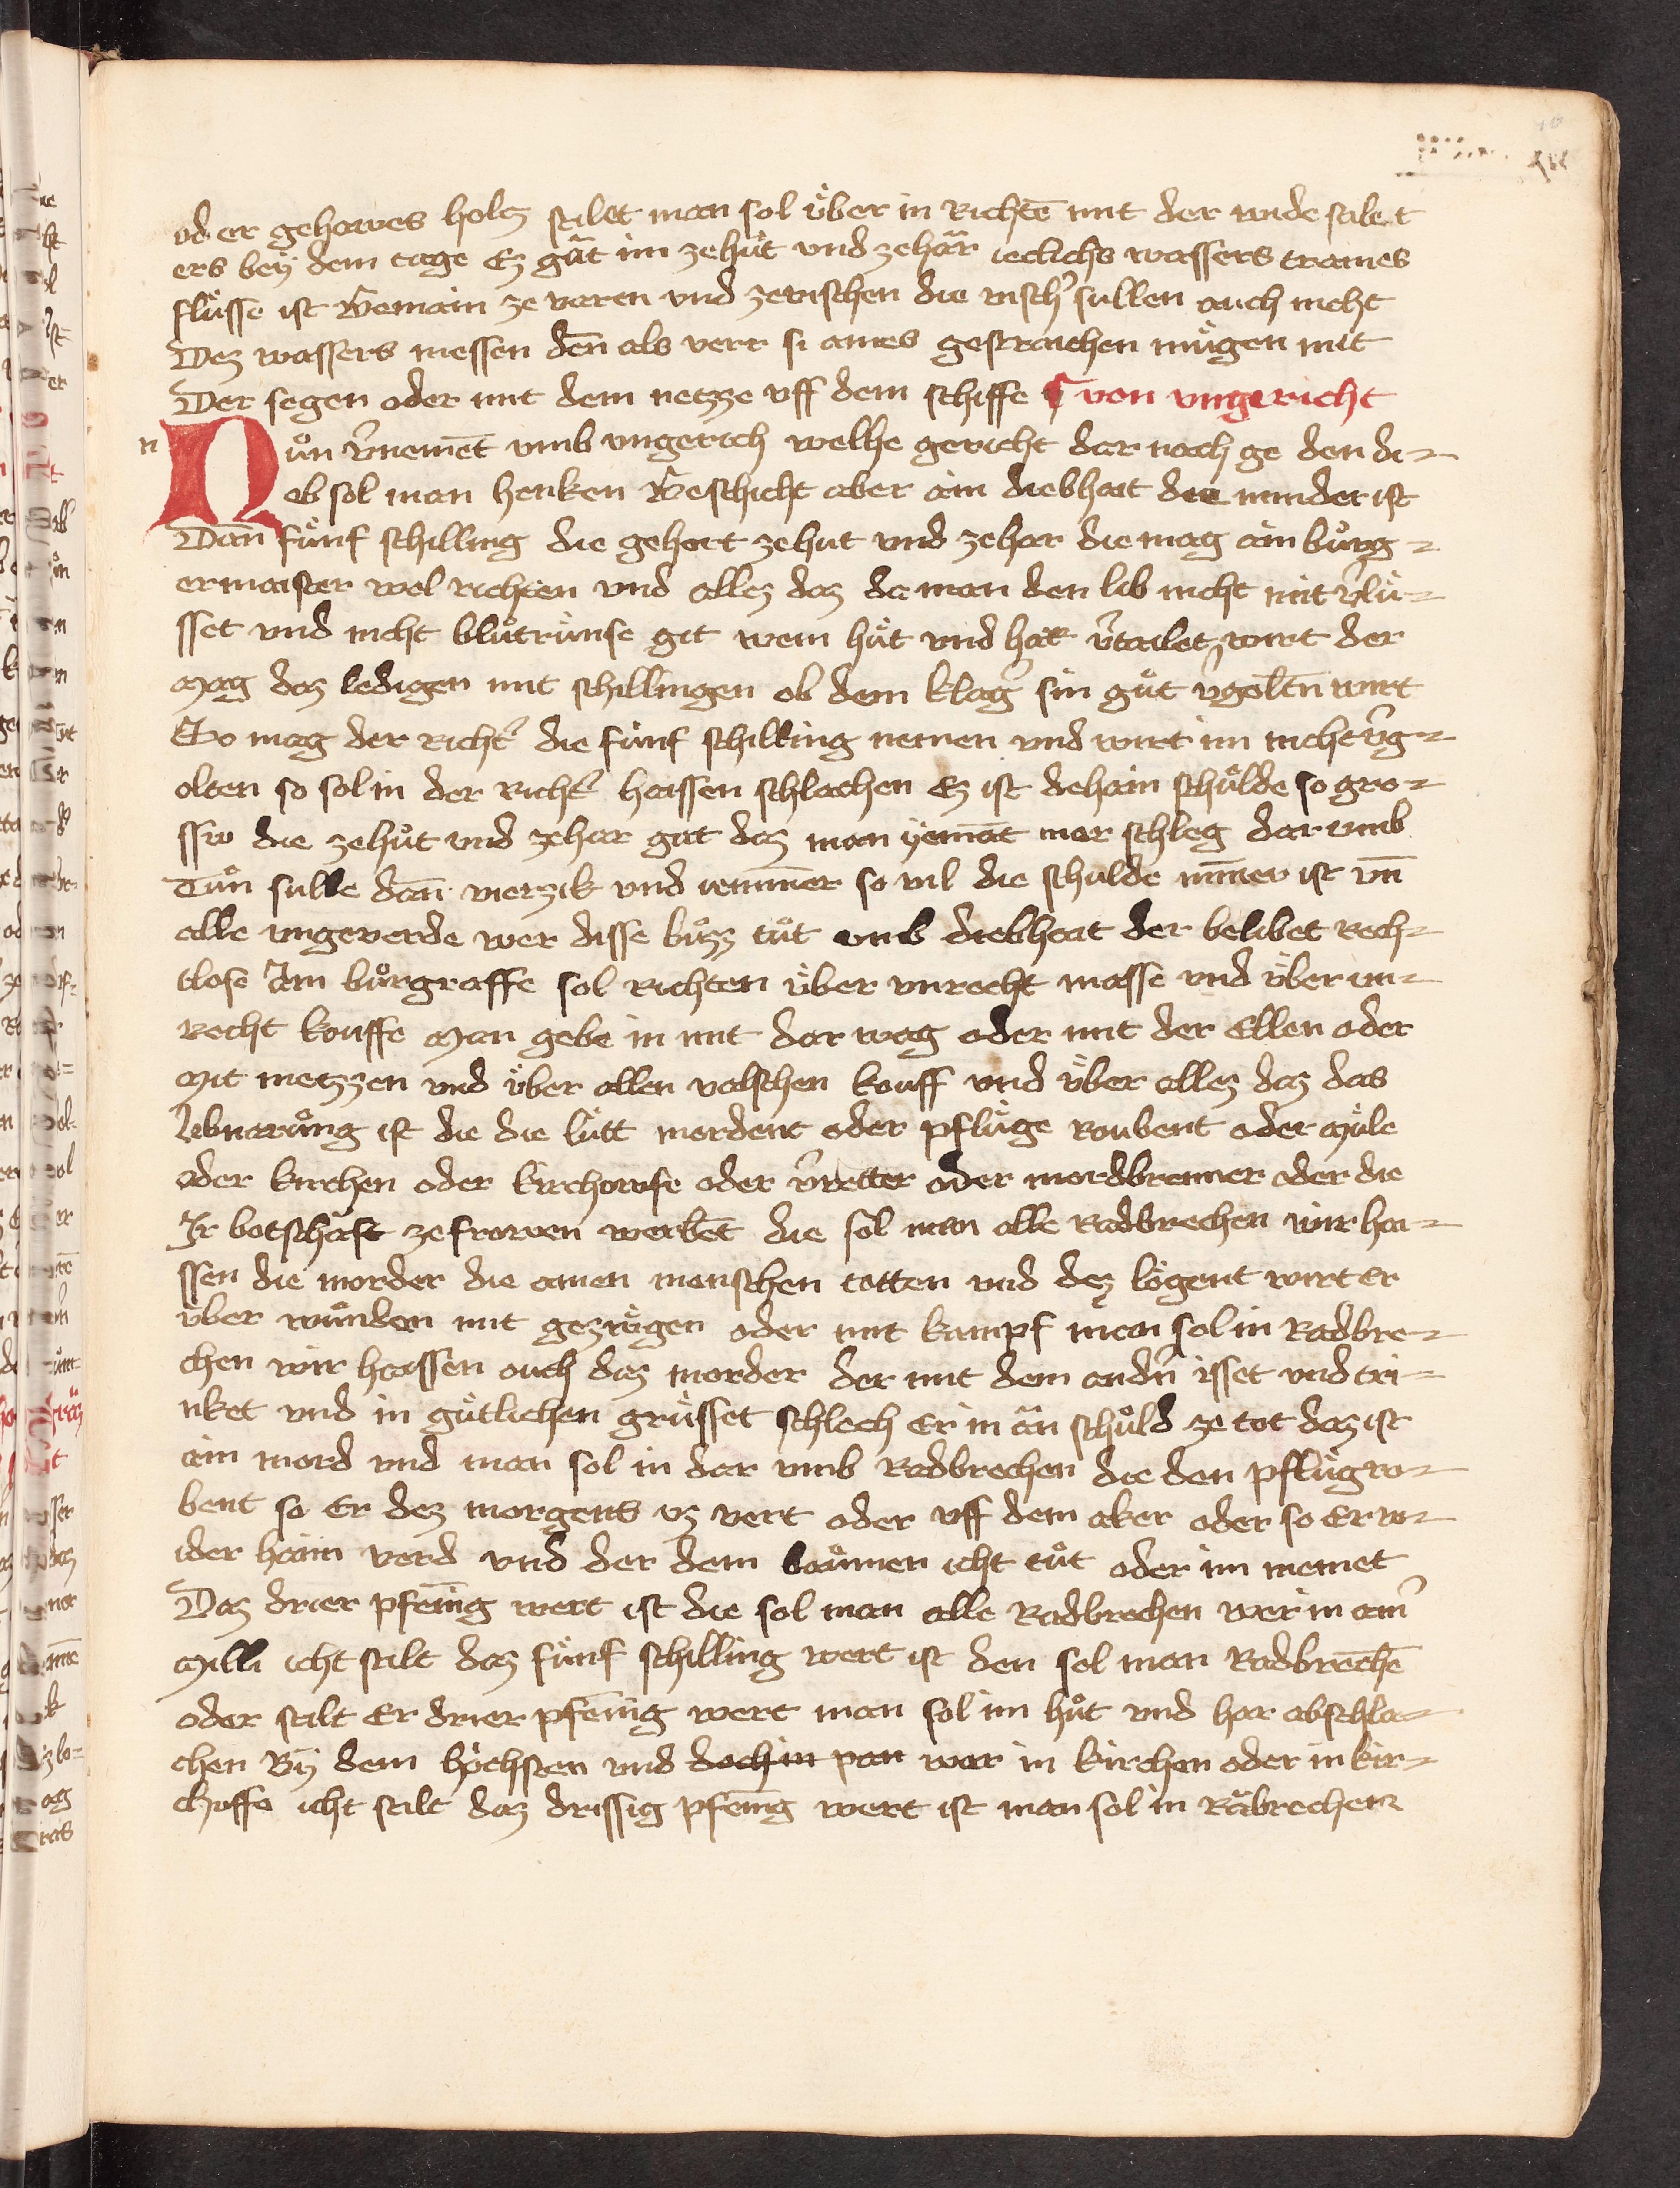 oder gehowes holtz stilet man sol über in Richtē mit der wide stilet
ers bey dem tage Ez gāt im zehüt vnd zehār ieclichs wassers trames
flüsse ist Gemain ze varen vnd zevischen die visch' sullen ouch nicht
Dez wassers niessen dēn als verr si aines gestraichen mügen mit
Der segen oder mit dem netzze vff dem schiffe ¶ von vngericht
Nůn v'nemēt vmb vngerich welhe gericht dar nach ge den di-
eb sol man henken Geschicht aber ain diebhait die minder ist
Dān fünf schilling die gehort zehut vnd zehar die mag ain bůrg-
ermaister wol richten vnd allez daz da man den lib nicht mit v'lü-
sset vnd nicht blůtrünse git wem hüt vnd har v'tailet wirt der
Mag daz ledigen mit schillingen ob dem klag' sin gůt v'goltn̄ wirt
So mag der Richt' die fünf schilling nemen vnd wirt im nicht v'g-
olten so sol in der Richt' haissen schlachen Ez ist dehain schulde so gro-
ssw die zehůt vnd zehar gat daz man yemāt mer schleg dar vmb
Tůn sulle dān vierzik vnd iemmer so vil die schulde mīner ist vn̄
alle vngeverde wer disse bůzz tůt vmb diebhait der belibet Rech-
tlose Ain bůrgraffe sol Richten über vnrecht masse vnd über vn-
recht kouffe Man gebe in mit dar wag oder mit der Ellen oder
Mit metzzen vnd über allen valschen kouff vnd über allez daz das
libnarůng ist die die lütt mordent oder pflüge Roubent oder Müle
oder kirchen oder kirchoufe oder v'retter oder mordbrenner oder die
Ir botschaft ze frowen werbēt die sol man alle Radbrechen wir hai-
ssen die morder die ainen menschen totten vnd dez lögent wirt Er
über wůnden mit gezwigen oder mit kampf man sol in Radbre-
chen wir haissen ouch daz morder der mit dem andn̄ isset vnd tri-
nket vnd in gütlichen grüsset schlech Er in ān schůld ze tot daz ist
ain mord vnd man sol in dar vmb Radbrechen die den pflüg ro-
bent so Er dez morgens vz vert oder vff dem aker oder so Er w-
ider haim verd vnd der dem boůmen icht tůt oder im niemet
Daz drier pfenīg wert ist die sol man alle Radbrechen wer in ain'
Milli icht stilt daz fünf schilling wert ist den sol man Radbrēchē
oder stilt Er drier pfenīg wert man sol im hůt vnd har abschla-
chen By dem höchsten vnd doch in pan wer in kirchen oder in kir-
choffe icht stilt daz drissig pfenīg wert ist man sol in Räbrechen